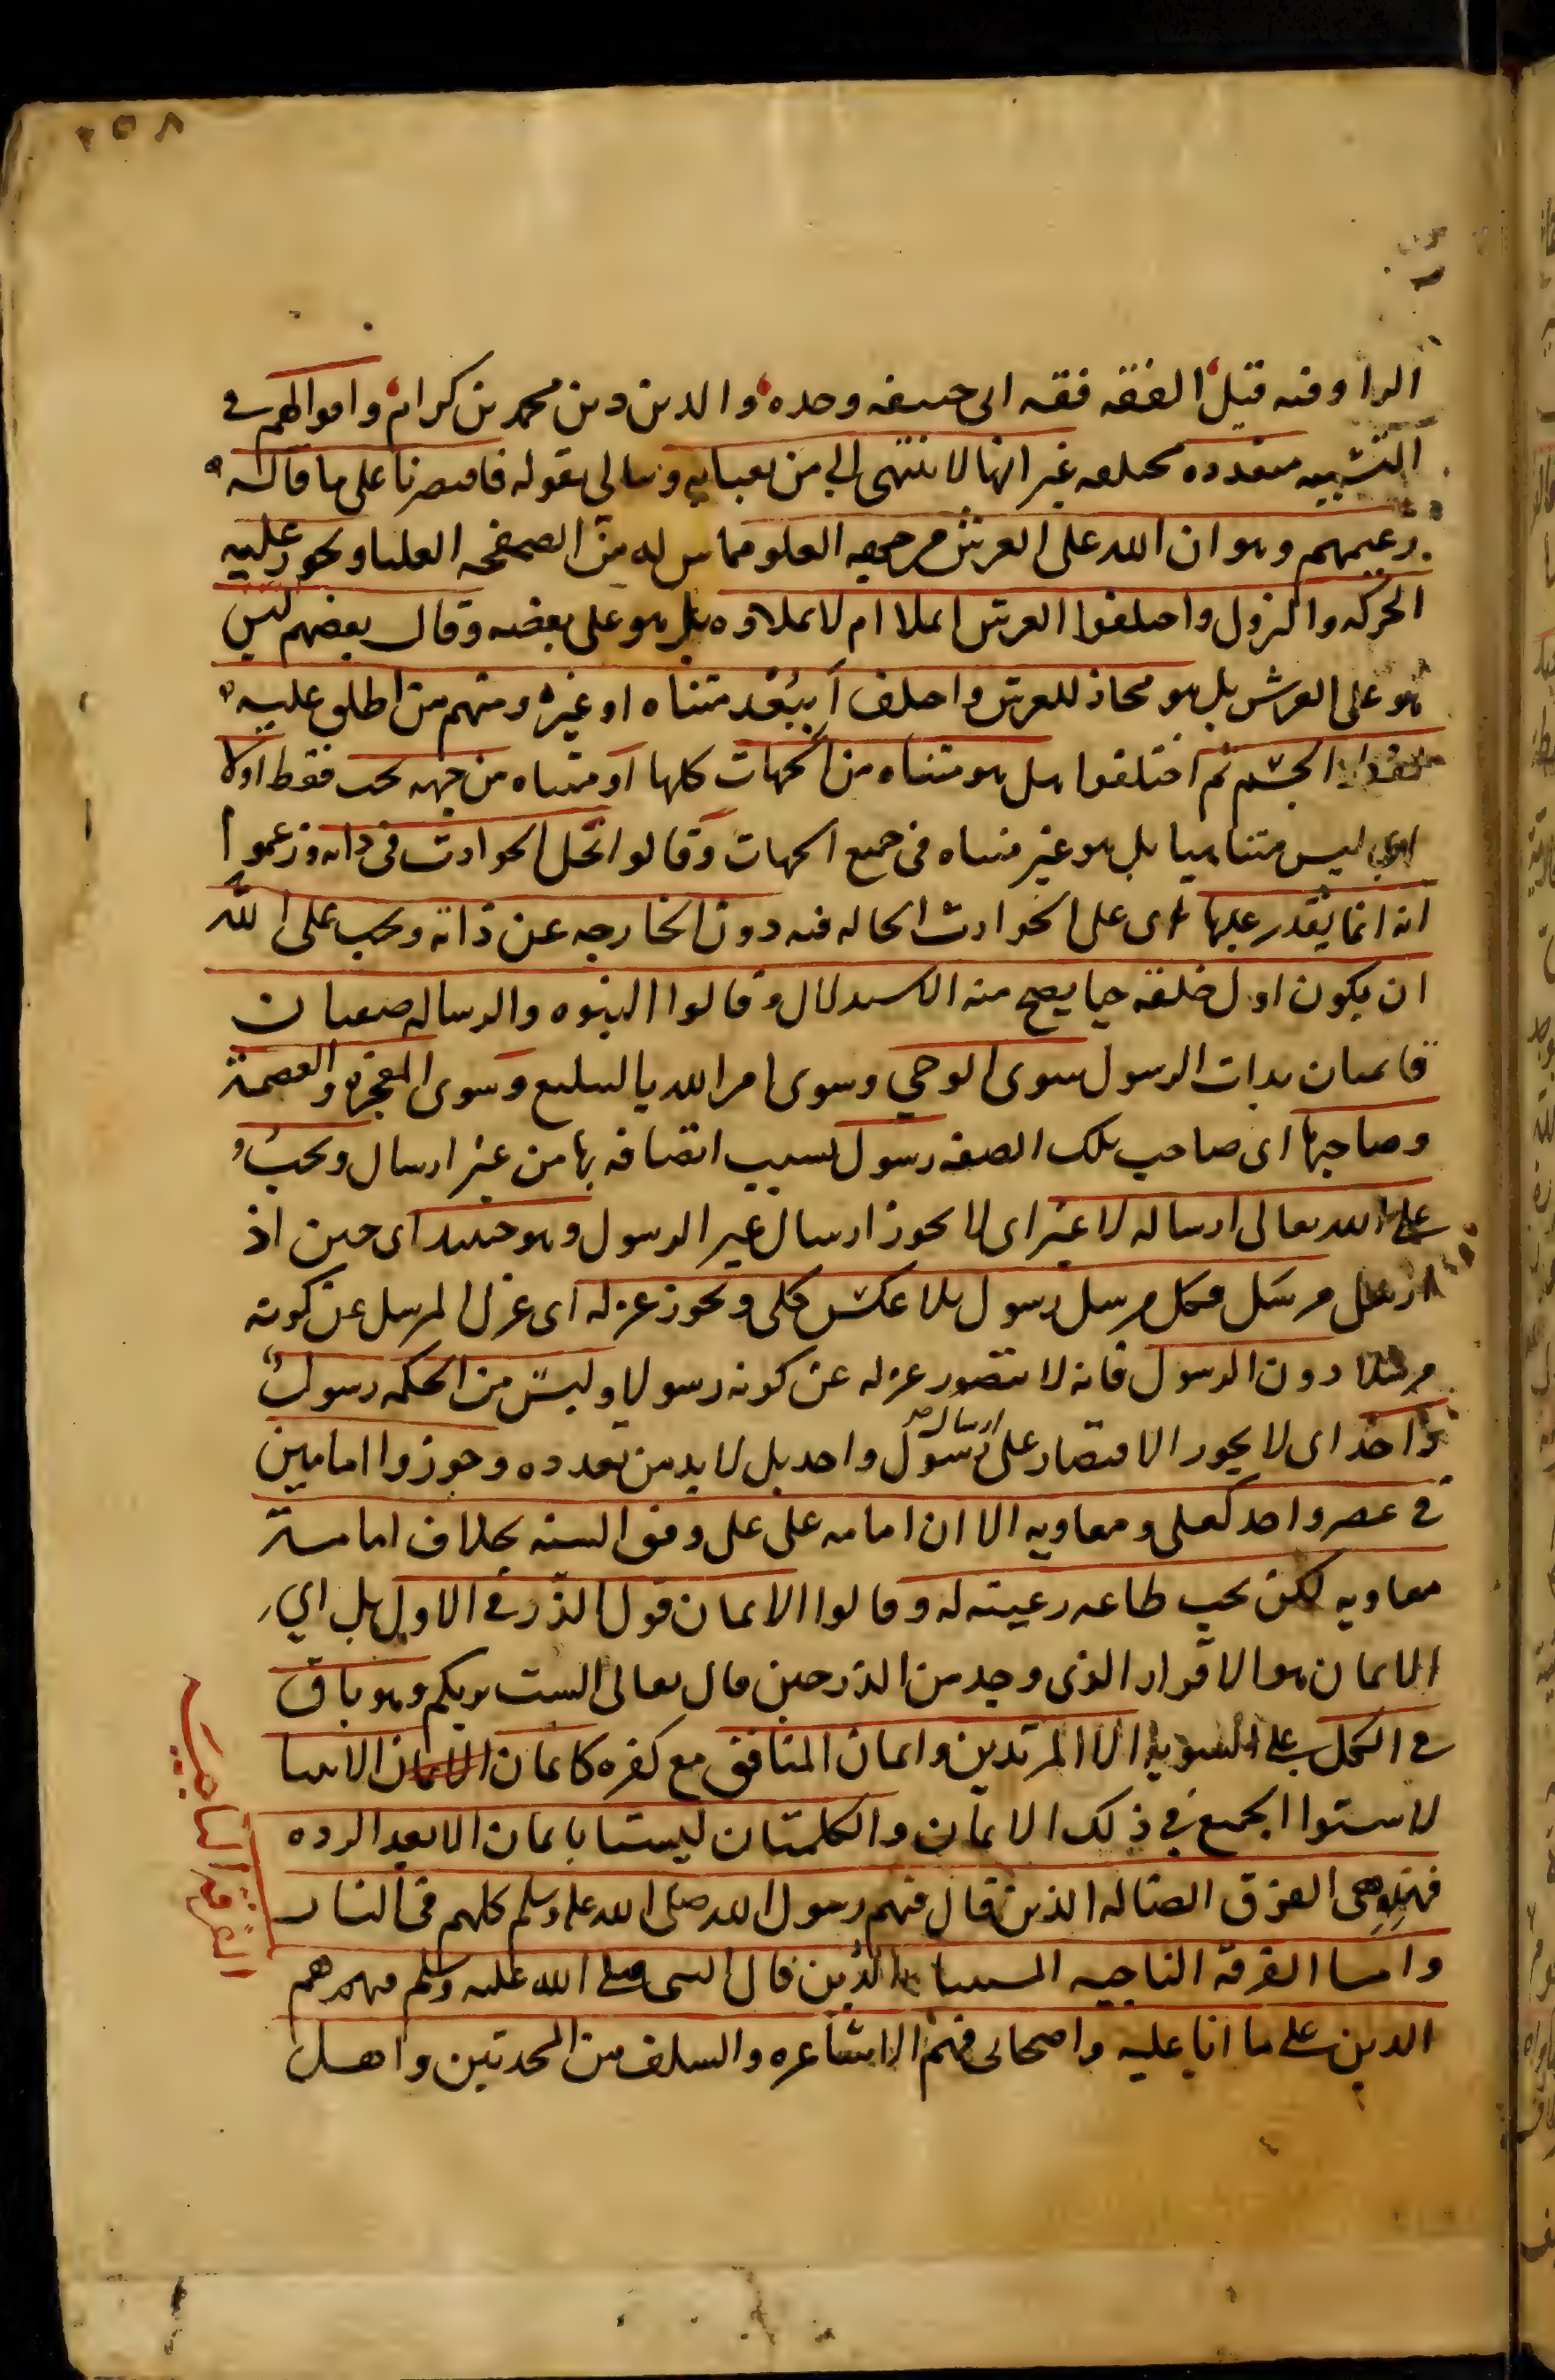 ٢٥٨
الراء وفيه قيل الفقه فقه ابى حنيفه وحده والدين دين محمد بن كرام واقوالهم فى
التشبيه متعدده مختلفه غير انها لا تنتهى الى من يعبا به ويبالى بقوله فاقتصرنا على ما قاله
زعيمهم وهو ان الله على العرش من جهه العلو مماس له من الصفحه العليا ويجوز عليه
الحركه والنزول واختلفوا العرش ايملا ام لا يملاوه بل هو على بعضه وقال بعضهم ليس
هو على العرش بل هو محاذ للعرش واختلف أببُعْد متناه او غيره ومنهم من اطلق عليه
لفظ الجسم ثم اختلفوا هل هو متناه من الجهات كلها او متناه من جهه تحت فقط اولا
اى ليس متناهيا بل هو غير متناه فى جميع الجهات وقالوا تحل الحوادث فى ذاته وزعموا
انه انما يقدر عليها اى على الحوادث الحاله فيه دون الخارجه عن ذاته ويجب على الله
ان يكون اول خلقه حيا يصح منه الاستدلال وقالوا النبوه والرساله صفتان
قائمتان بذات الرسول سوى الوحي وسوى امر الله بالتبليغ وسوى المعجزه والعصمة
وصاحبها اى صاحب تلك الصفه رسول بسبب اتصافه بها من غير ارسال ويجب
على الله تعالى ارساله لا غير اى لا يجوز ارسال غير الرسول وهو حينئذ اى حين اذ
ارسل مرسَل فكل مرسل رسول بلا عكس كلى ويجوز عزله اى عزل المرسل عن كونه
مرسلا دون الرسول فانه لا يتصور عزله عن كونه رسولا وليس من الحكمه رسول
واحد اى لا يجوز الاقتصار على ارسال رسول واحد بل لا بد من تعدده وجوزوا امامين
فى عصر واحد كعلى ومعاويه الا ان امامه على على وفق السنه بخلاف امامة
معاويه لكن يجب طاعه رعيته له وقالوا الايمان قول الذر فى الاول بلى اي
الايمان هو الاقرار الذى وجد من الذر حين قال تعالى الست بربكم وهو باق
فى الكل على السويه الا المرتدين وايمان المنافق مع كفره كايمان الانبيا
لاستوا الجميع في ذلك الايمان والكلمتان ليستا بايمان الا بعد الرده
فهذه هى الفرق الضاله الذين قال فيهم رسول الله صلى الله عليه وسلم كلهم فى النار
واما الفرقه الناجيه المستثناه الذين قال النبى صلى الله عليه وسلم فيهم هم
الذين على ما انا عليه واصحابى فهم الاشاعره والسلف من المحدثين واهل
الفرقة الناجيه